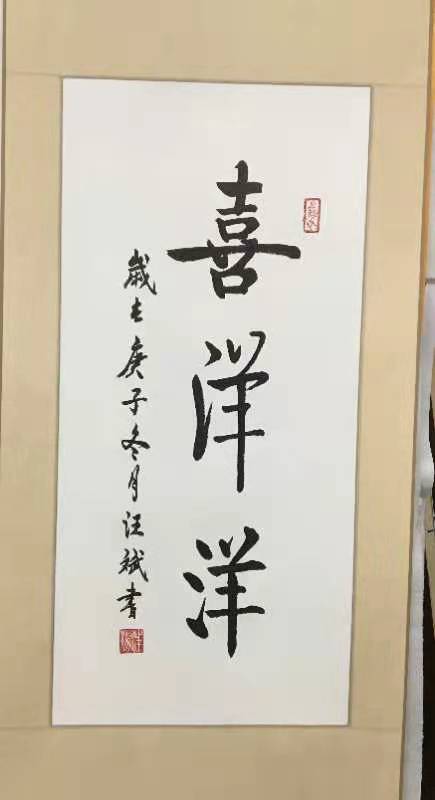 喜洋洋
歲在庚子冬月汪斌書